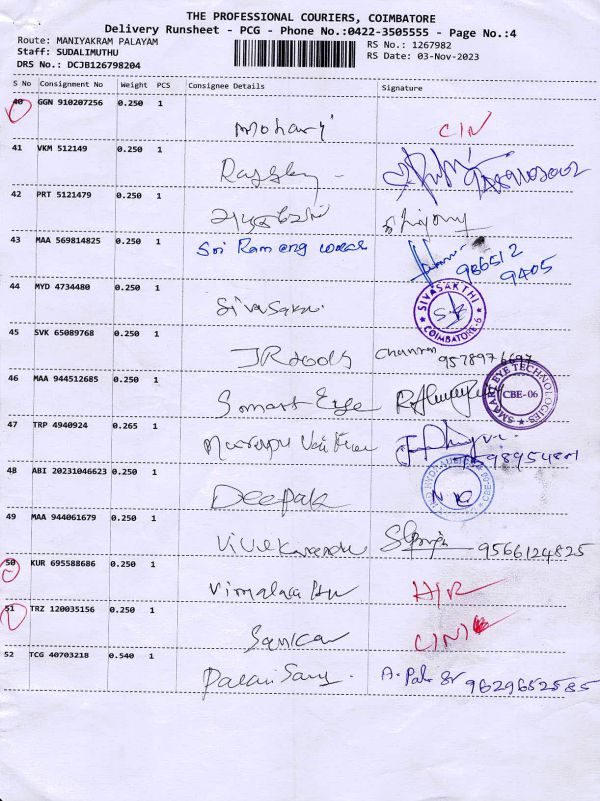 THE PROFESSIONAL COURIERS, COIMBATORE
Delivery Runsheet - PCG - Phone No.:0422-3505555 - Page No.:4
Route: MANIYAKRAM PALAYAM
Staff: SUDALIMUTHU
DRS No.: DCJB126798204
RS No.: 1267982
RS Date: 03-Nov-2023
S No Consignment No Weight PCS Consignee Details Signature
40 GGN 910207256 0.250 1
C/N
41 VKM 512149 0.250 1
42 PRT 5121479 0.250 1
43 MAA 569814825 0.250 1 Sri Ram eng works
986512
9405
44 MYD 4734480 0.250 1
Sivasakti
SIVASAKTHI
COIMBATORE-6
45 SVK 65089768 0.250 1
JR Foods 9578976697
46 MAA 944512685 0.250 1
Smart Eye
SMMART EYE TECHNOLOGIES
CBE-06
47 TRP 4940924 0.265 1
48 ABI 20231046623 0.250 1
Deepak
49 MAA 944061679 0.250 1
Vivekananda 9566124825
50 KUR 695588686 0.250 1
51 TRZ 120035156 0.250 1
Sankar
52 TCG 40703218 0.540 1
Palani Samy. 9629652585